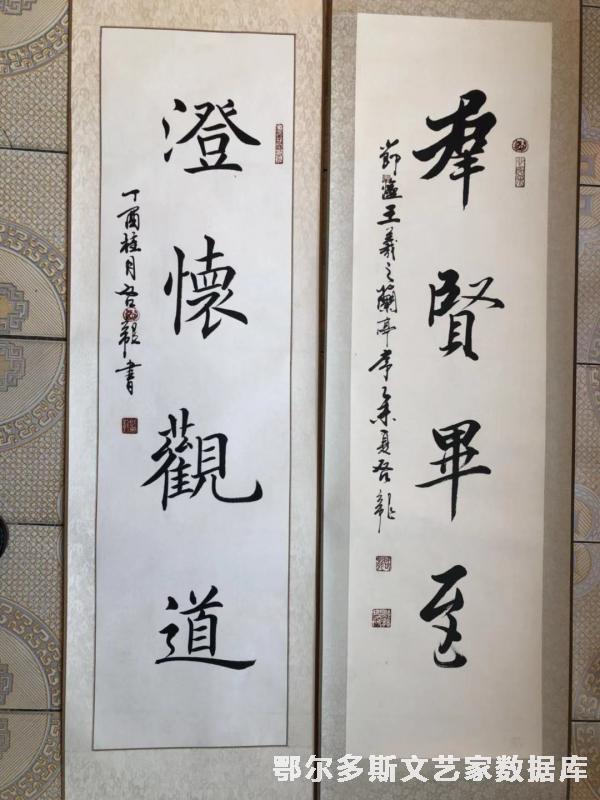 群賢畢至
節臨王羲之蘭亭序乙未夏吾龍
澄懷觀道
丁酉桂月吾龍書
鄂尔多斯文艺家数据库